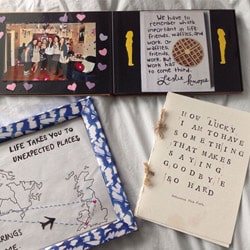 We have to
remember what's
important in life:
friends, waffles, and
work. Or
waffles,
friends,
work. But
work has
to come third.
Leslie Knope
LIFE TAKES YOU TO
UNEXPECTED PLACES
HOW LUCKY
I AM TO HAVE
SOMETHING
THAT MAKES
SAYING
GOODBYE
SO HARD